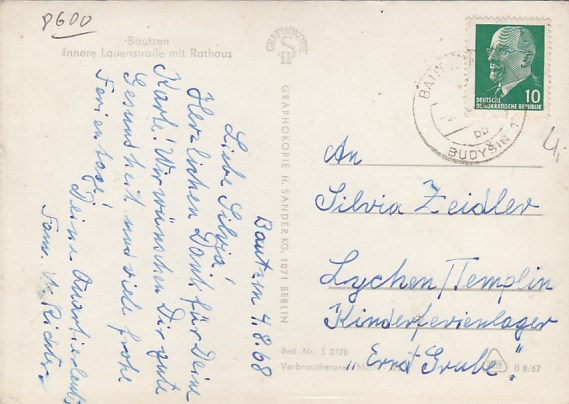 8600
Bautzen
Innere Lauenstraße mit Rathaus
Bautzen 4.8.68
Liebe Silvia!
Herzlichen Dank für Deine
Karte! Wir wünschen Dir gute
Gesundheit und viele frohe
Ferientage!
Deine Quartiersleute
Fam. Richter
GRAPHOKOPIE
GRAPHOKOPIE H. SANDER KG, 1071 BERLIN
DEUTSCHE
DEMOKRATISCHE REPUBLIK
10
BUDYŠIN
An
Silvia Zeidler
Lychen/Templin
Kinderferienlager
„Ernst Grube“
Best. Nr. S 2728
Verbraucherpreis
B 8/67